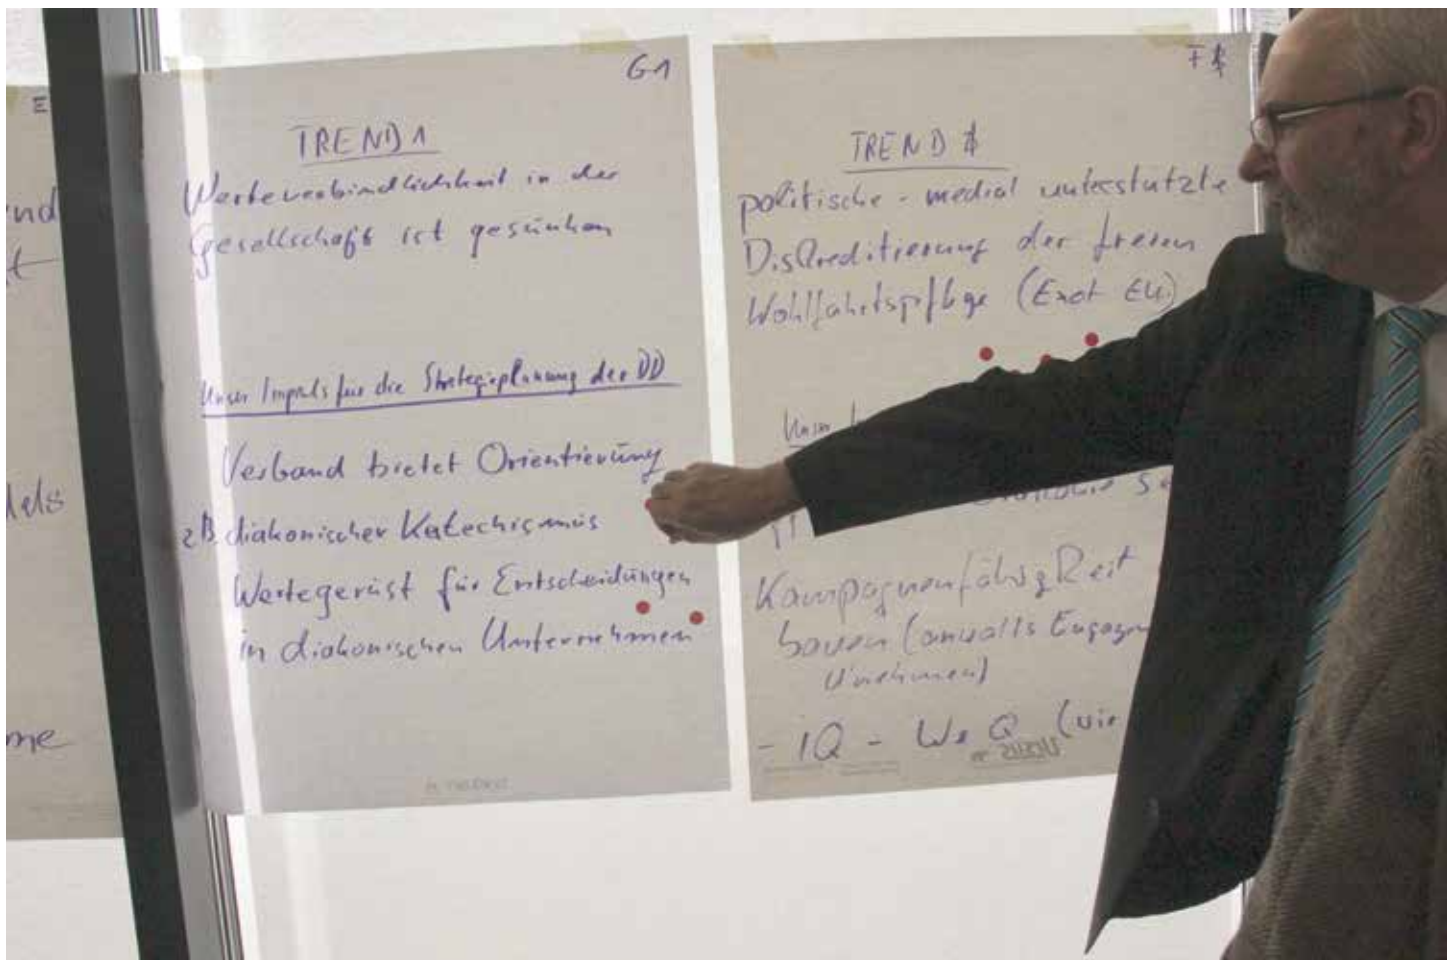 E
nd
t
dels
me
G1
TREND 1
Werteverbindlichkeit in der
Gesellschaft ist gesunken
Unser Impuls für die Strategieplanung der DD
Verband bietet Orientierung
zB diakonischer Katechismus
Wertegerüst für Entscheidungen
in diakonischen Unternehmen
F
TREND
politische - medial unterstützte
Diskreditierung der freien
Wohlfahrtspflege (Exot EU)
Unser
Kampagnenfähigkeit
bauen (anwalts Engagem
Unehmen)
- iQ - We Q (wie